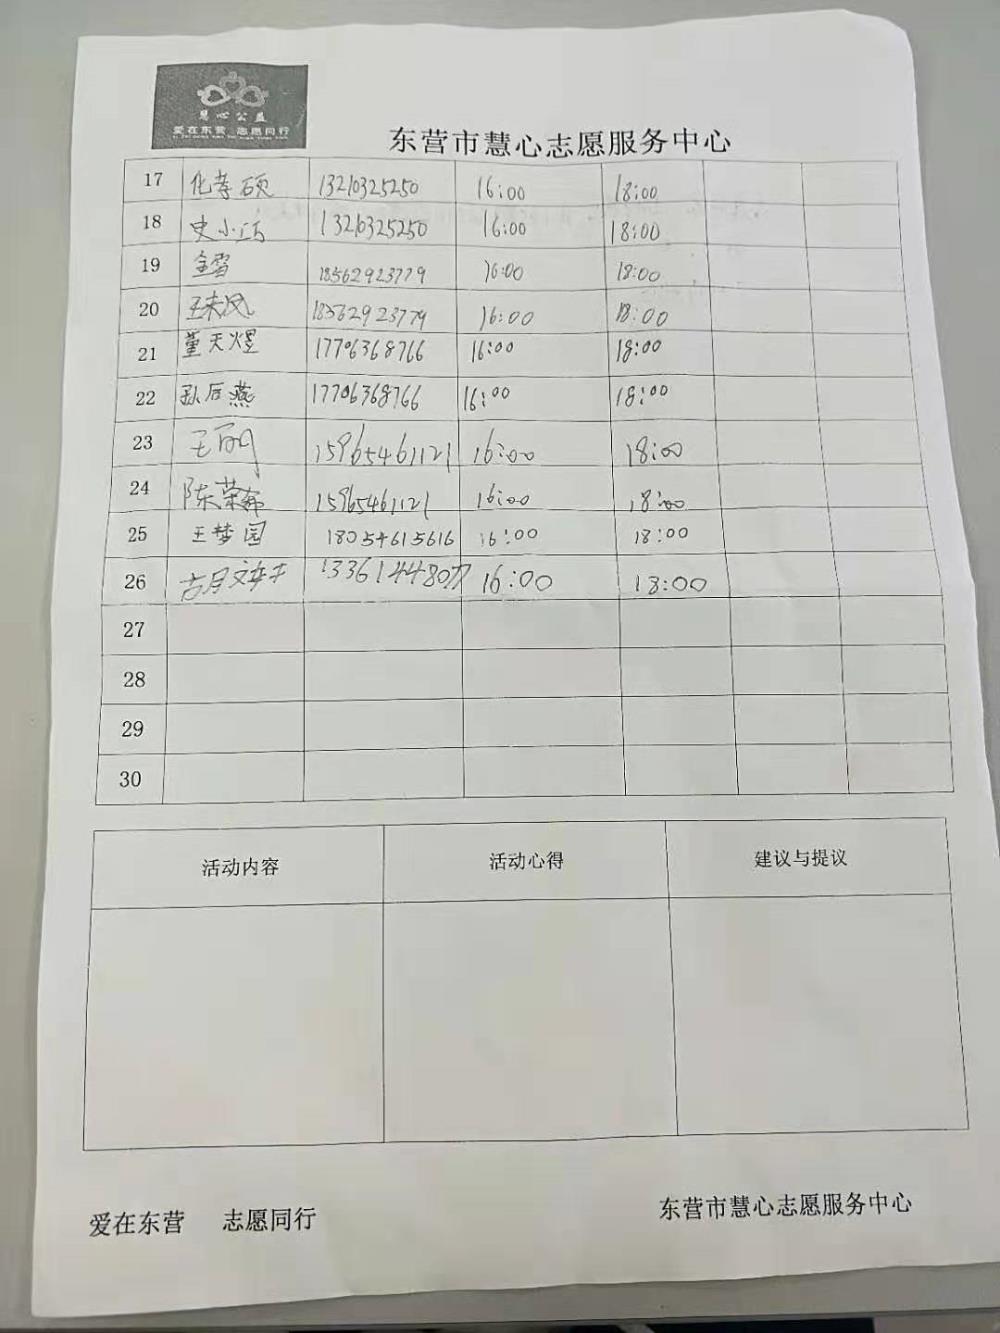 慧心公益
爱在东营 志愿同行
东营市慧心志愿服务中心
17 化孝硕 13210325250 16:00 18:00
18 史小 13210325250 16:00 18:00
19 金雪 18562923779 16:00 18:00
20 王来凤 18562923779 16:00 18:00
21 董天煜 17706368766 16:00 18:00
22 孙后燕 17706368766 16:00 18:00
23 王 15965461121 16:00 18:00
24 陈荣 15965461121 16:00 18:00
25 王梦园 18054615616 16:00 18:00
26 胡文 16:00 18:00
27
28
29
30
活动内容 活动心得 建议与提议
爱在东营 志愿同行 东营市慧心志愿服务中心